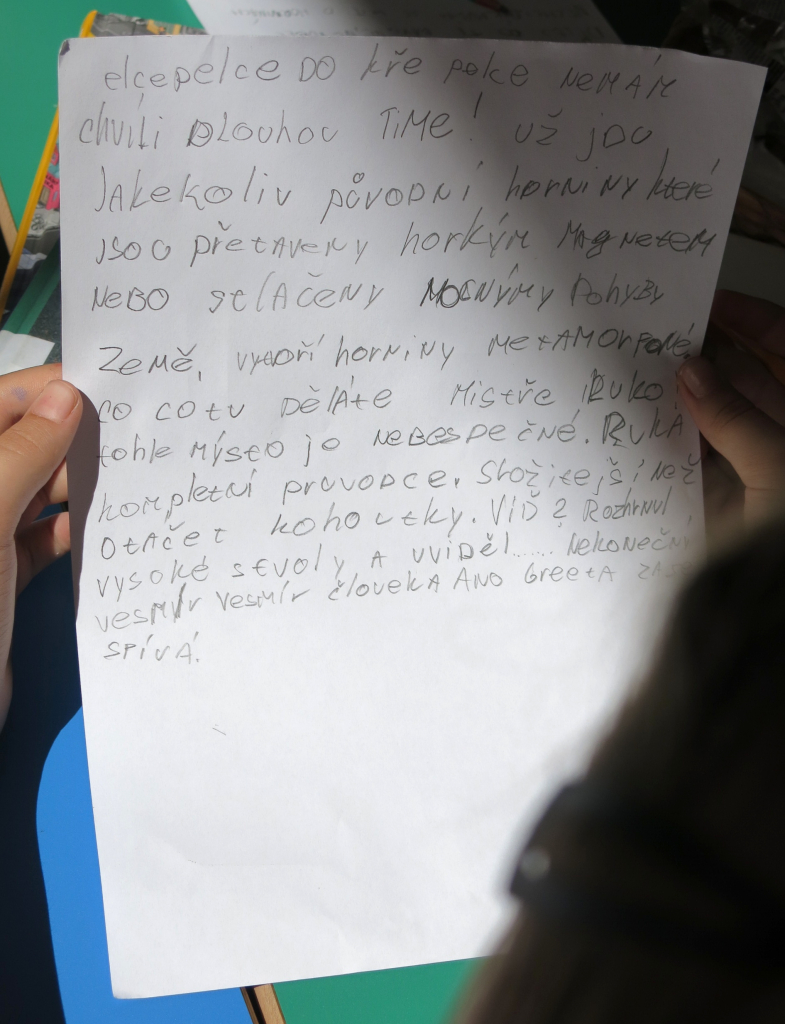 elcepelce DO kře pelce NEMÁM
chvíli DLOUHOU TIME! už jDU
JAkékoliv půvoDNí horniny které
jsou přetAveny horkým MAgNetem
NeBO stlAčeNy MOCNýMy Pohyby
Země, vytvoří horniny MetAMOrfoné,
co cotu Děláte Mistře RUKO!
tohle Mýsto je NeBesPečné. RUKÁ
kompletní pruvoDce. Složitejší Než
otáčet kohoutky. ViĎ? Rozhrnul
vysoké stvoly A uviDěl...... Nekonečný
vesmír vesmír člověkA ANO GreetA
SPívÁ.